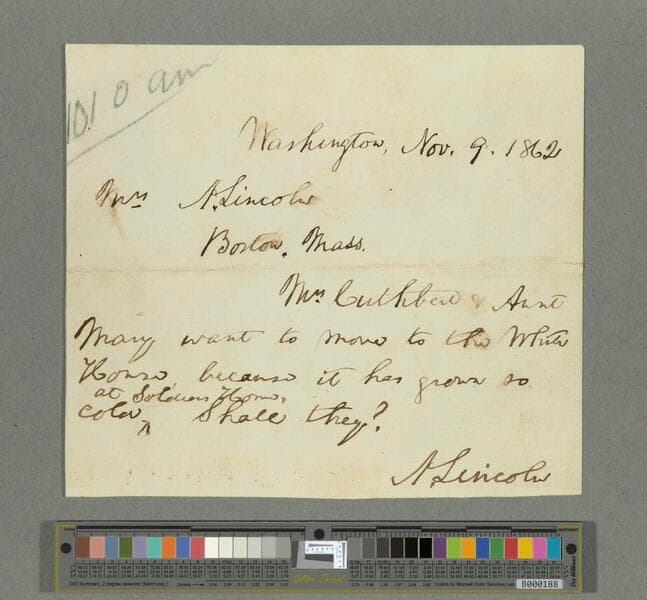 1010 am
Washington, Nov. 9. 1862
Mrs A. Lincoln
Boston, Mass.
Mrs Cuthbert & Aunt
Mary want to move to the White
House, because it has grown so
at Soldiers Home,
cold ^ Shall they?
A Lincoln
B000188